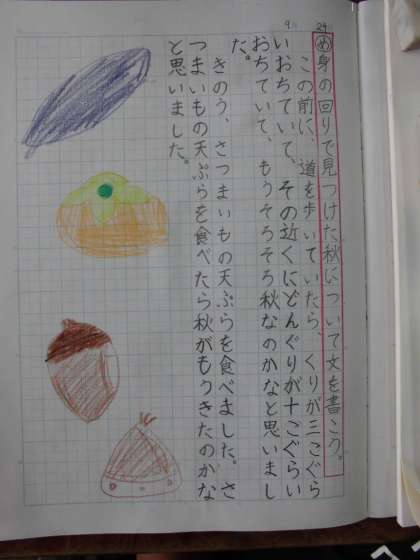 9 29
め 身の回りで見つけた秋について文を書こう。
この前に、道を歩いていたら、くりが三こぐら
いおちていて、その近くにどんぐりが十こぐらい
おちていて、もうそろそろ秋なのかなと思いまし
た。
きのう、さつまいもの天ぷらを食べました。さ
つまいもの天ぷらを食べたら秋がもうきたのかな
と思いました。